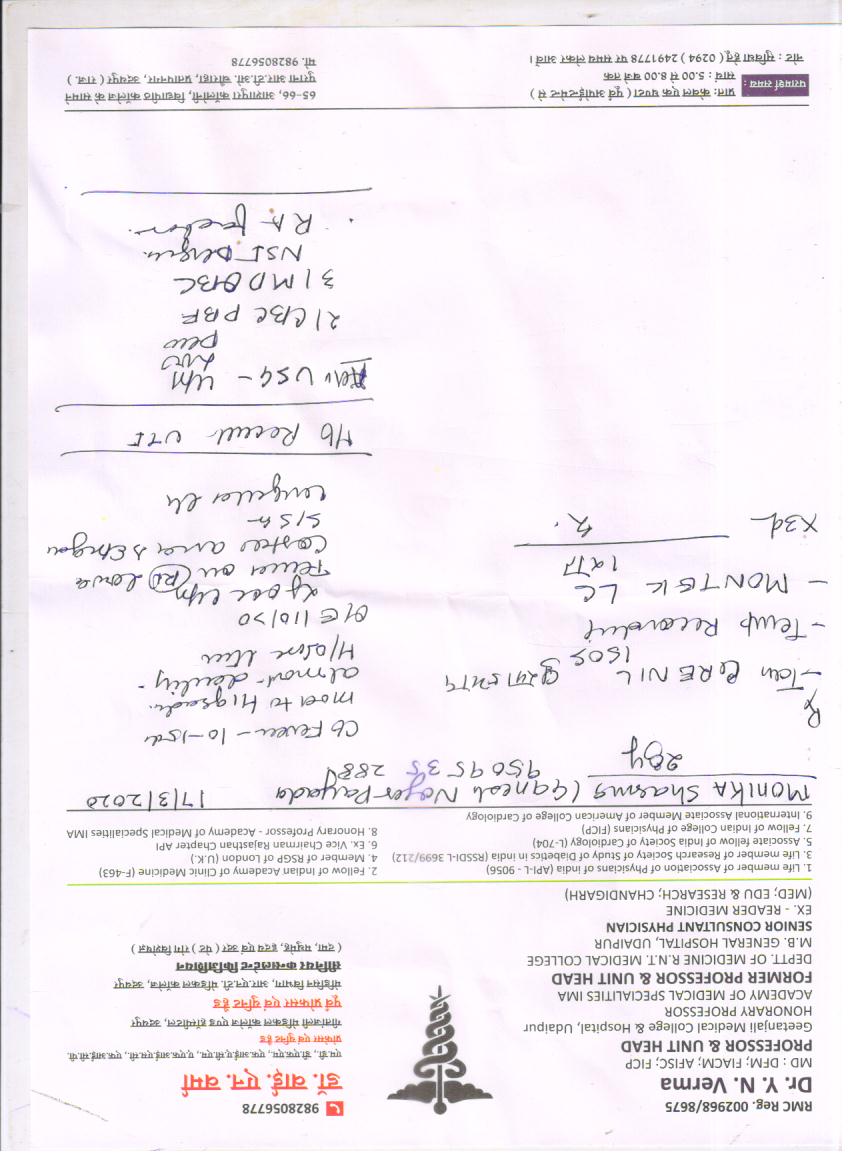 RMC Reg. 002968/8675
Dr. Y. N. Verma
MD : DFM; FIACM; AFISC; FICP
PROFESSOR & UNIT HEAD
Geetanjali Medical College & Hospital, Udaipur
HONORARY PROFESSOR
ACADEMY OF MEDICAL SPECIALITIES IMA
FORMER PROFESSOR & UNIT HEAD
DEPTT. OF MEDICINE R.N.T. MEDICAL COLLEGE
M.B. GENERAL HOSPITAL, UDAIPUR
SENIOR CONSULTANT PHYSICIAN
EX. - READER MEDICINE
(MED; EDU & RESEARCH; CHANDIGARH)
9828056778
डॉ. वाई. एन. वर्मा
एम.डी., डी.एफ.एम., एफ.आई.ए.सी.एम., ए.एफ.आई.एस.सी., एफ.आई.सी.पी.
प्रोफेसर एवं यूनिट हैड
गीतांजली मेडिकल कॉलेज एण्ड हॉस्पीटल, उदयपुर
पूर्व प्रोफेसर एवं यूनिट हैड
मेडिसिन विभाग, आर.एन.टी. मेडिकल कॉलेज, उदयपुर
सीनियर कन्सलटेन्ट फिजिशियन
( दमा, मधुमेह, हृदय एवं उदर ( पेट ) रोग विशेषज्ञ )
1. Life member of Association of Physicians of india (API-L - 9056)
2. Fellow of Indian Academy of Clinic Medicine (F-463)
3. Life member of Research Society of Study of Diabetics in india (RSSDI-L 3699/212)
4. Member of RSGP of London (U.K.)
5. Associate fellow of India Society of Cardiology (L-704)
6. Ex. Vice Chairman Rajasthan Chapter API
7. Fellow of Indian College of Physicians (FICP)
8. Honorary Professor - Academy of Medical Specialities IMA
9. International Associate Member of American College of Cardiology
Monika Sharma (Ganesh Nager Payada 17/3/2020
28y
95095 35 288
Rx
- MONTEK LC
- Temp Record
X3d
C/o Fever - 10-15d
almost daily
O/E 110/70
H/o Recurrent UTI
Adv USG -
2/ CBC PBF
3/ MD QBC
NSI Dengue
RA factor
परामर्श समय :
प्रातः केवल एक घण्टा ( पूर्व अपॉइन्टमेन्ट से )
सायं : 5.00 से 8.00 बजे तक
नोट : सुविधा हेतु ( 0294 ) 2491778 पर समय लेकर आवें।
65-66, आशापुरा कॉलोनी, विद्यापीठ कॉलेज के सामने
पुराना आर.टी.ओ. चौराहा, प्रतापनगर, उदयपुर ( राज. )
मो. 9828056778